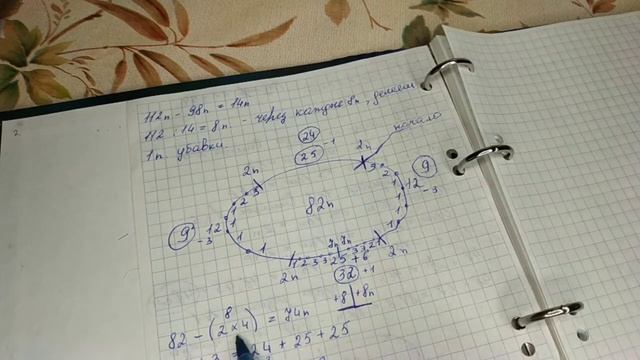 2
112п - 98п = 14п
112 : 14 = 8п - через каждые 8п, делаем
1п убавки
начало
24
25 -1
2п
2п
3
2
1
12
-3
9
82п
9
12
-3
2п
1 2 3 3 2 5 + 6
7п 7п
3 3 2 1
2п
32 +1
+8 | +8п
8
82 - (2 × 4) = 74п
= 24 + 25 + 25